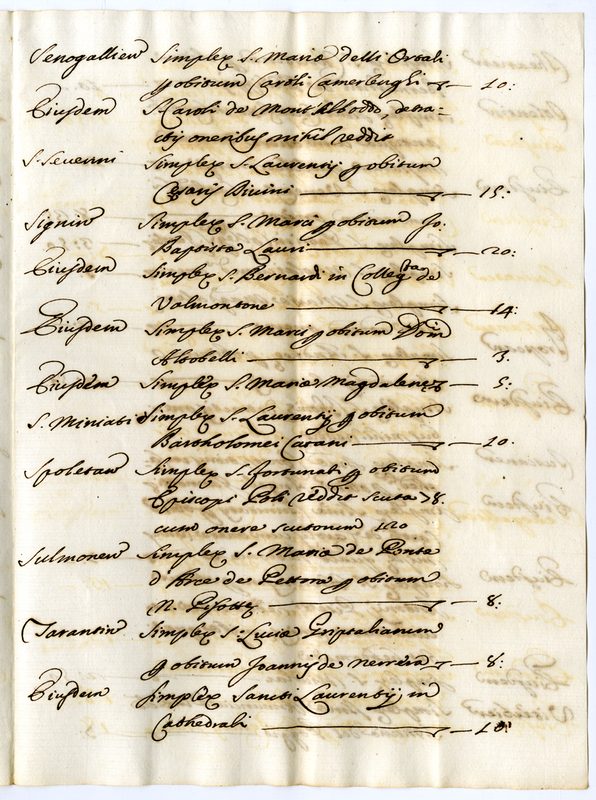 Senogallien Simplex S. Mariæ delli Orbali
p obitum Caroli Camerlenghi — 10:
Eiusdem S. Caroli de Mont'Alboddo, detra-
ctis oneribus nihil reddit
S. Severini Simplex S. Laurentij p obitum
Cæsaris Divini — 15:
Signin Simplex S. Marci p obitum Jo:
Baptistæ Lauri — 20:
Eiusdem Simplex S. Bernardi in Collegta de
Valmontone — 14:
Eiusdem Simplex S. Marci p obitum Dom
Altobelli — 3.
Eiusdem Simplex S. Mariæ Magdalenæ — 5:
S. Miniati Simplex S. Laurentij p obitum
Bartholomei Catani — 10.
Spoletan Simplex S. Fortunati p obitum
Episcopi Poli reddit scuta 78.
cum onere scutorum 120
Sulmonen Simplex S. Mariæ de Ponte
d'Arce de Pettora p obitum
N. — 8:
Tarantin Simplex S. Luciæ
p obitum Joannis de — 8:
Eiusdem Simplex Sancti Laurentij in
Cathedrali — 10: